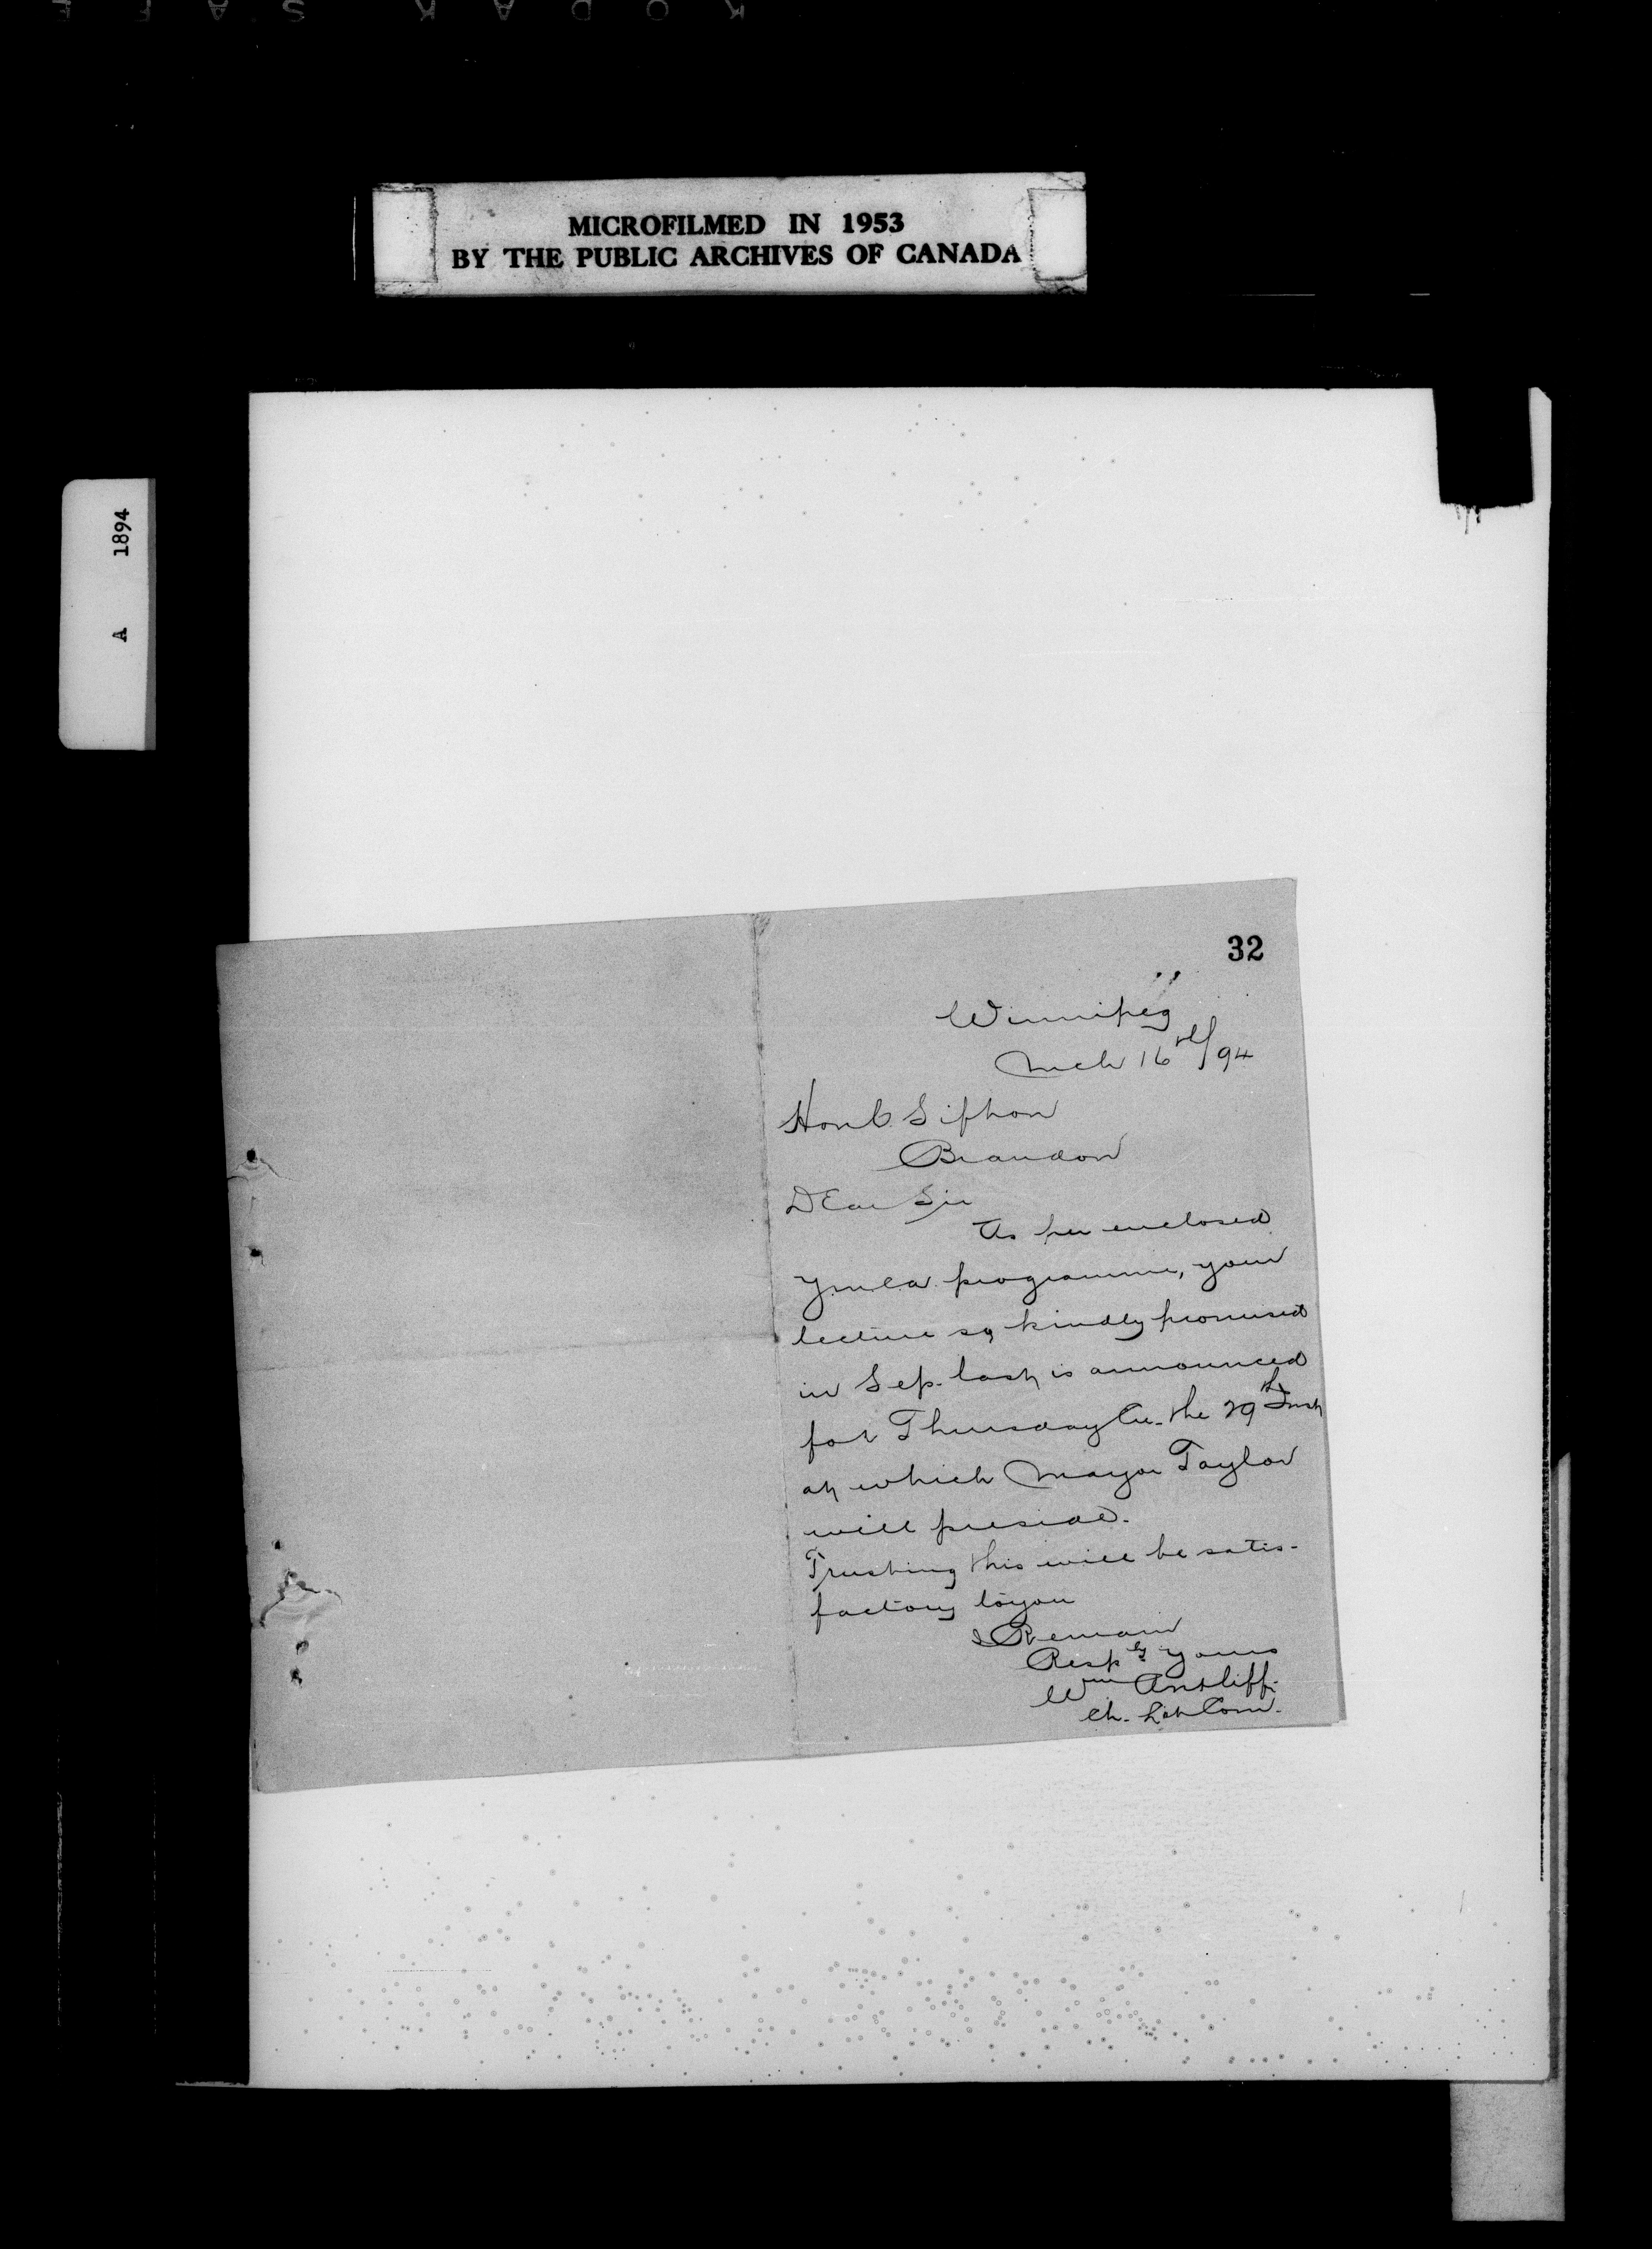 MICROFILMED IN 1953
BY THE PUBLIC ARCHIVES OF CANADA
A 1894
32
Winnipeg
Mch 16th/94
Hon C Sifton
Brandon
Dear Sir
As per enclosed
YMCA programme, your
lecture so kindly promised
in Sep. last is announced
for Thursday Eve. the 29th Inst
at which Mayor Taylor
will preside.
Trusting this will be satis-
factory to you
I Remain
Respy Yours
Wm Antliff.
Ch. Com.